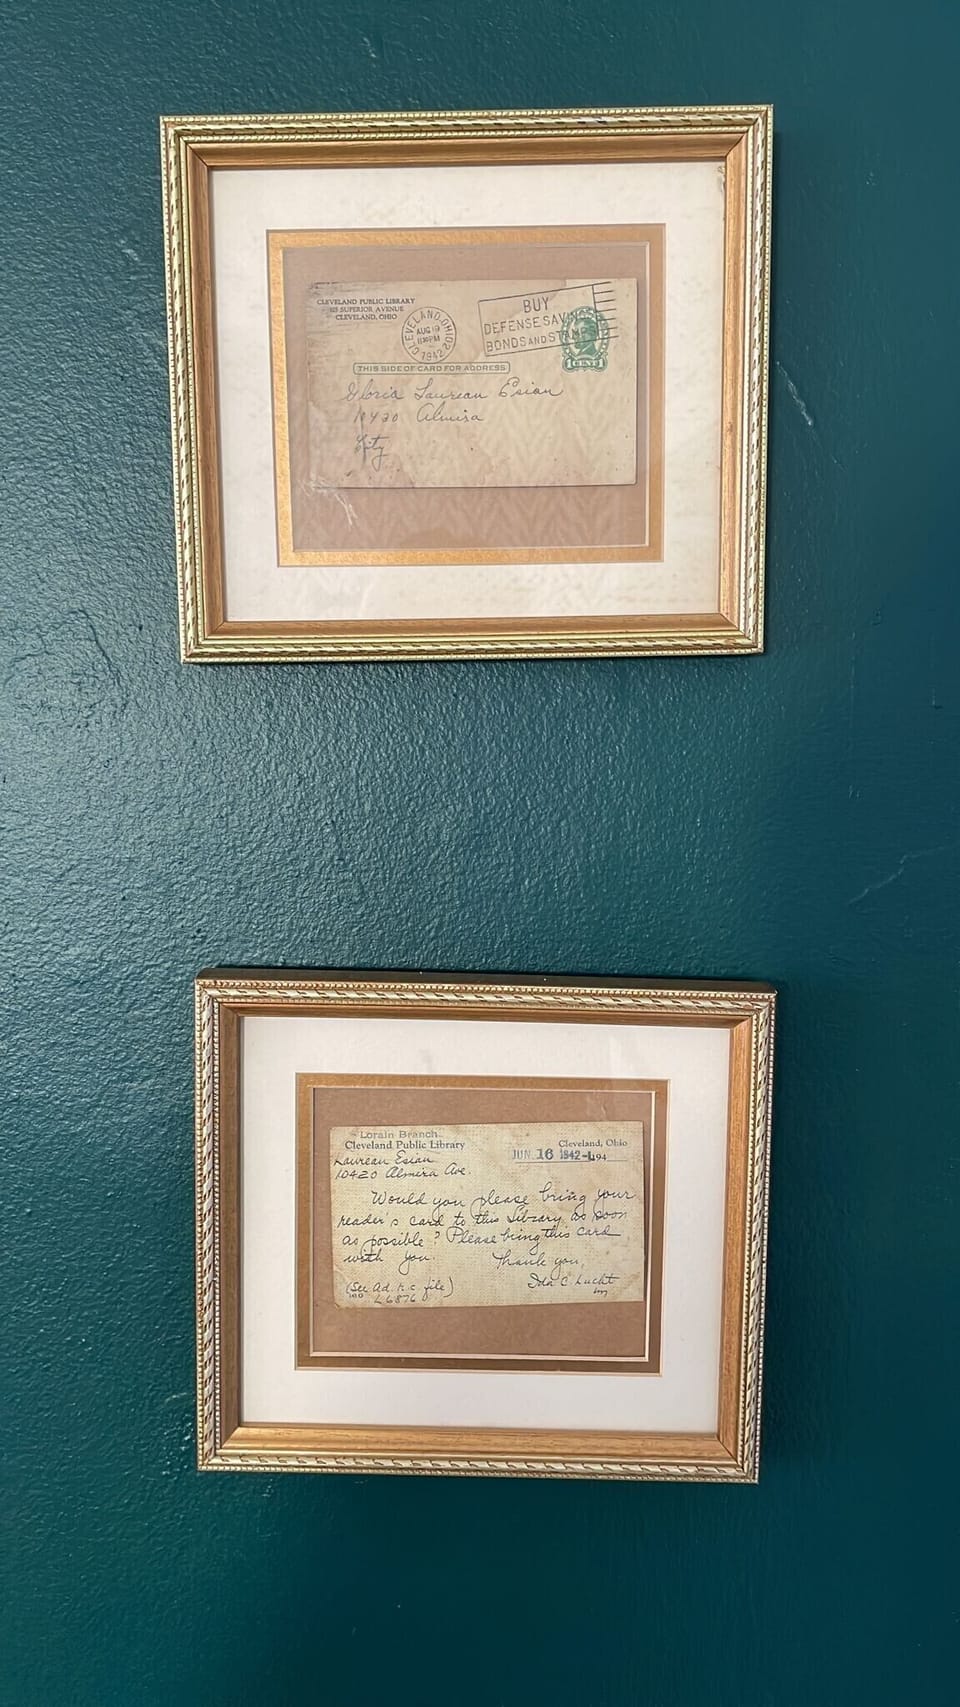 CLEVELAND PUBLIC LIBRARY
325 SUPERIOR AVENUE
CLEVELAND, OHIO
CLEVELAND, OHIO
AUG 19
PM
1942
BUY
DEFENSE SAVINGS
BONDS AND STAMPS
1 CENT 1
THIS SIDE OF CARD FOR ADDRESS
Gloria Laurean Esian
10420 Almira
City
Lorain Branch
Cleveland Public Library
Cleveland, Ohio
JUN 16 1942 194
Laurean Esian
10420 Almira Ave.
Would you please bring your
reader's card to this Library as soon
as possible? Please bring this card
with you Thank you,
Ida C. Lucht
(See Ad. r.c. file)
L6876